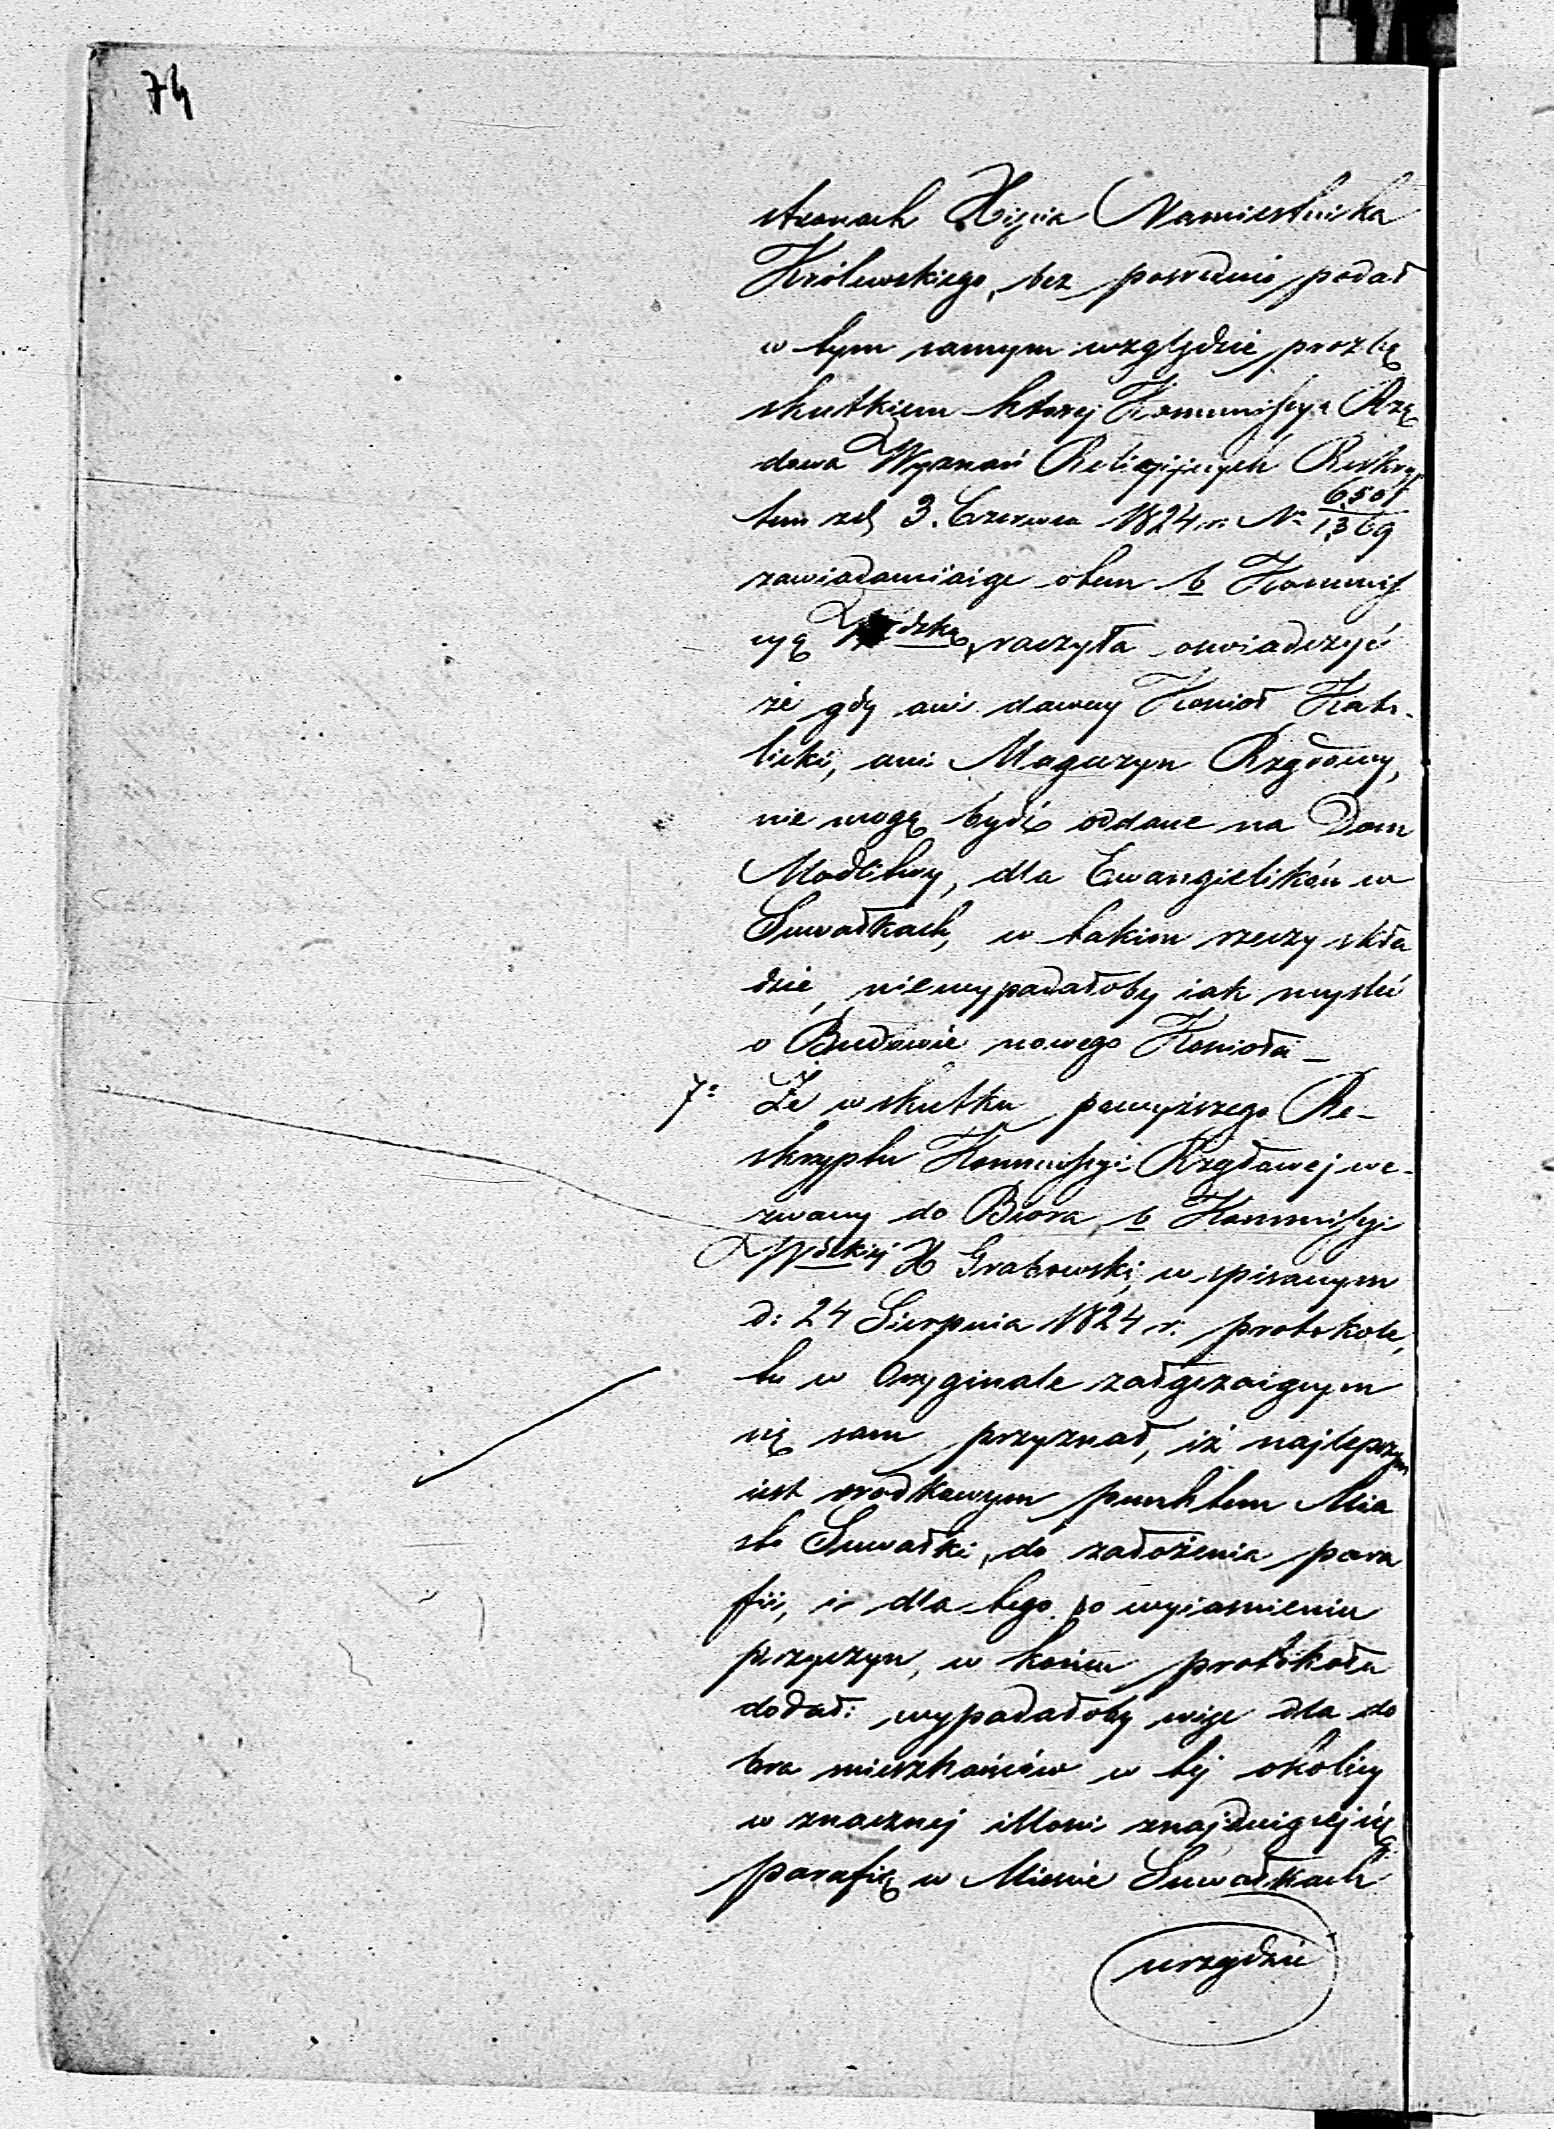 74
stronach Xięcia Namiestnika
Królewskiego, bez posrednio podał
w tym samym względzie prozbę
skutkiem ktorej Kommissya Rzą
dowa Wyznań Religijnych Reskryp
tem zd 3. Czerwca 1824 r. No 6501/1369
zawiadamiaiąc otem b Kommis
syą Wdzką, raczyła oswiadczyć
że gdy ani dawny Koscioł Kato-
licki, ani Magazyn Rządowy,
nie mogą bydź oddane na Dom
Modlitwy, dla Ewangielików w
Suwałkach, w takim rzeczy skła
dzie, niewypadałoby iak myslić
o Budowie nowego Koscioła –
7o Że w skutku powyższego Re-
skryptu Kommissyi Rządowej we-
zwany do Biora b Kommissyi
Wdzkiej X Grabowski, w spisanym
d: 24 Sierpnia 1824 r. protokole,
tu w Oryginale załączaiącym
się sam przyznał, iż najlepszym
iest srodkowym punktem Mia
sto Suwałki, do założenia para
fii, i dla tego po wyiasnieniu
przyczyn, w koncu protokołu
dodał: wypadałoby więc dla do
bra mieszkańców w tej okolicy
w znacznej illosci znajduiącej się
parafię w Miescie Suwałkach
urządzić